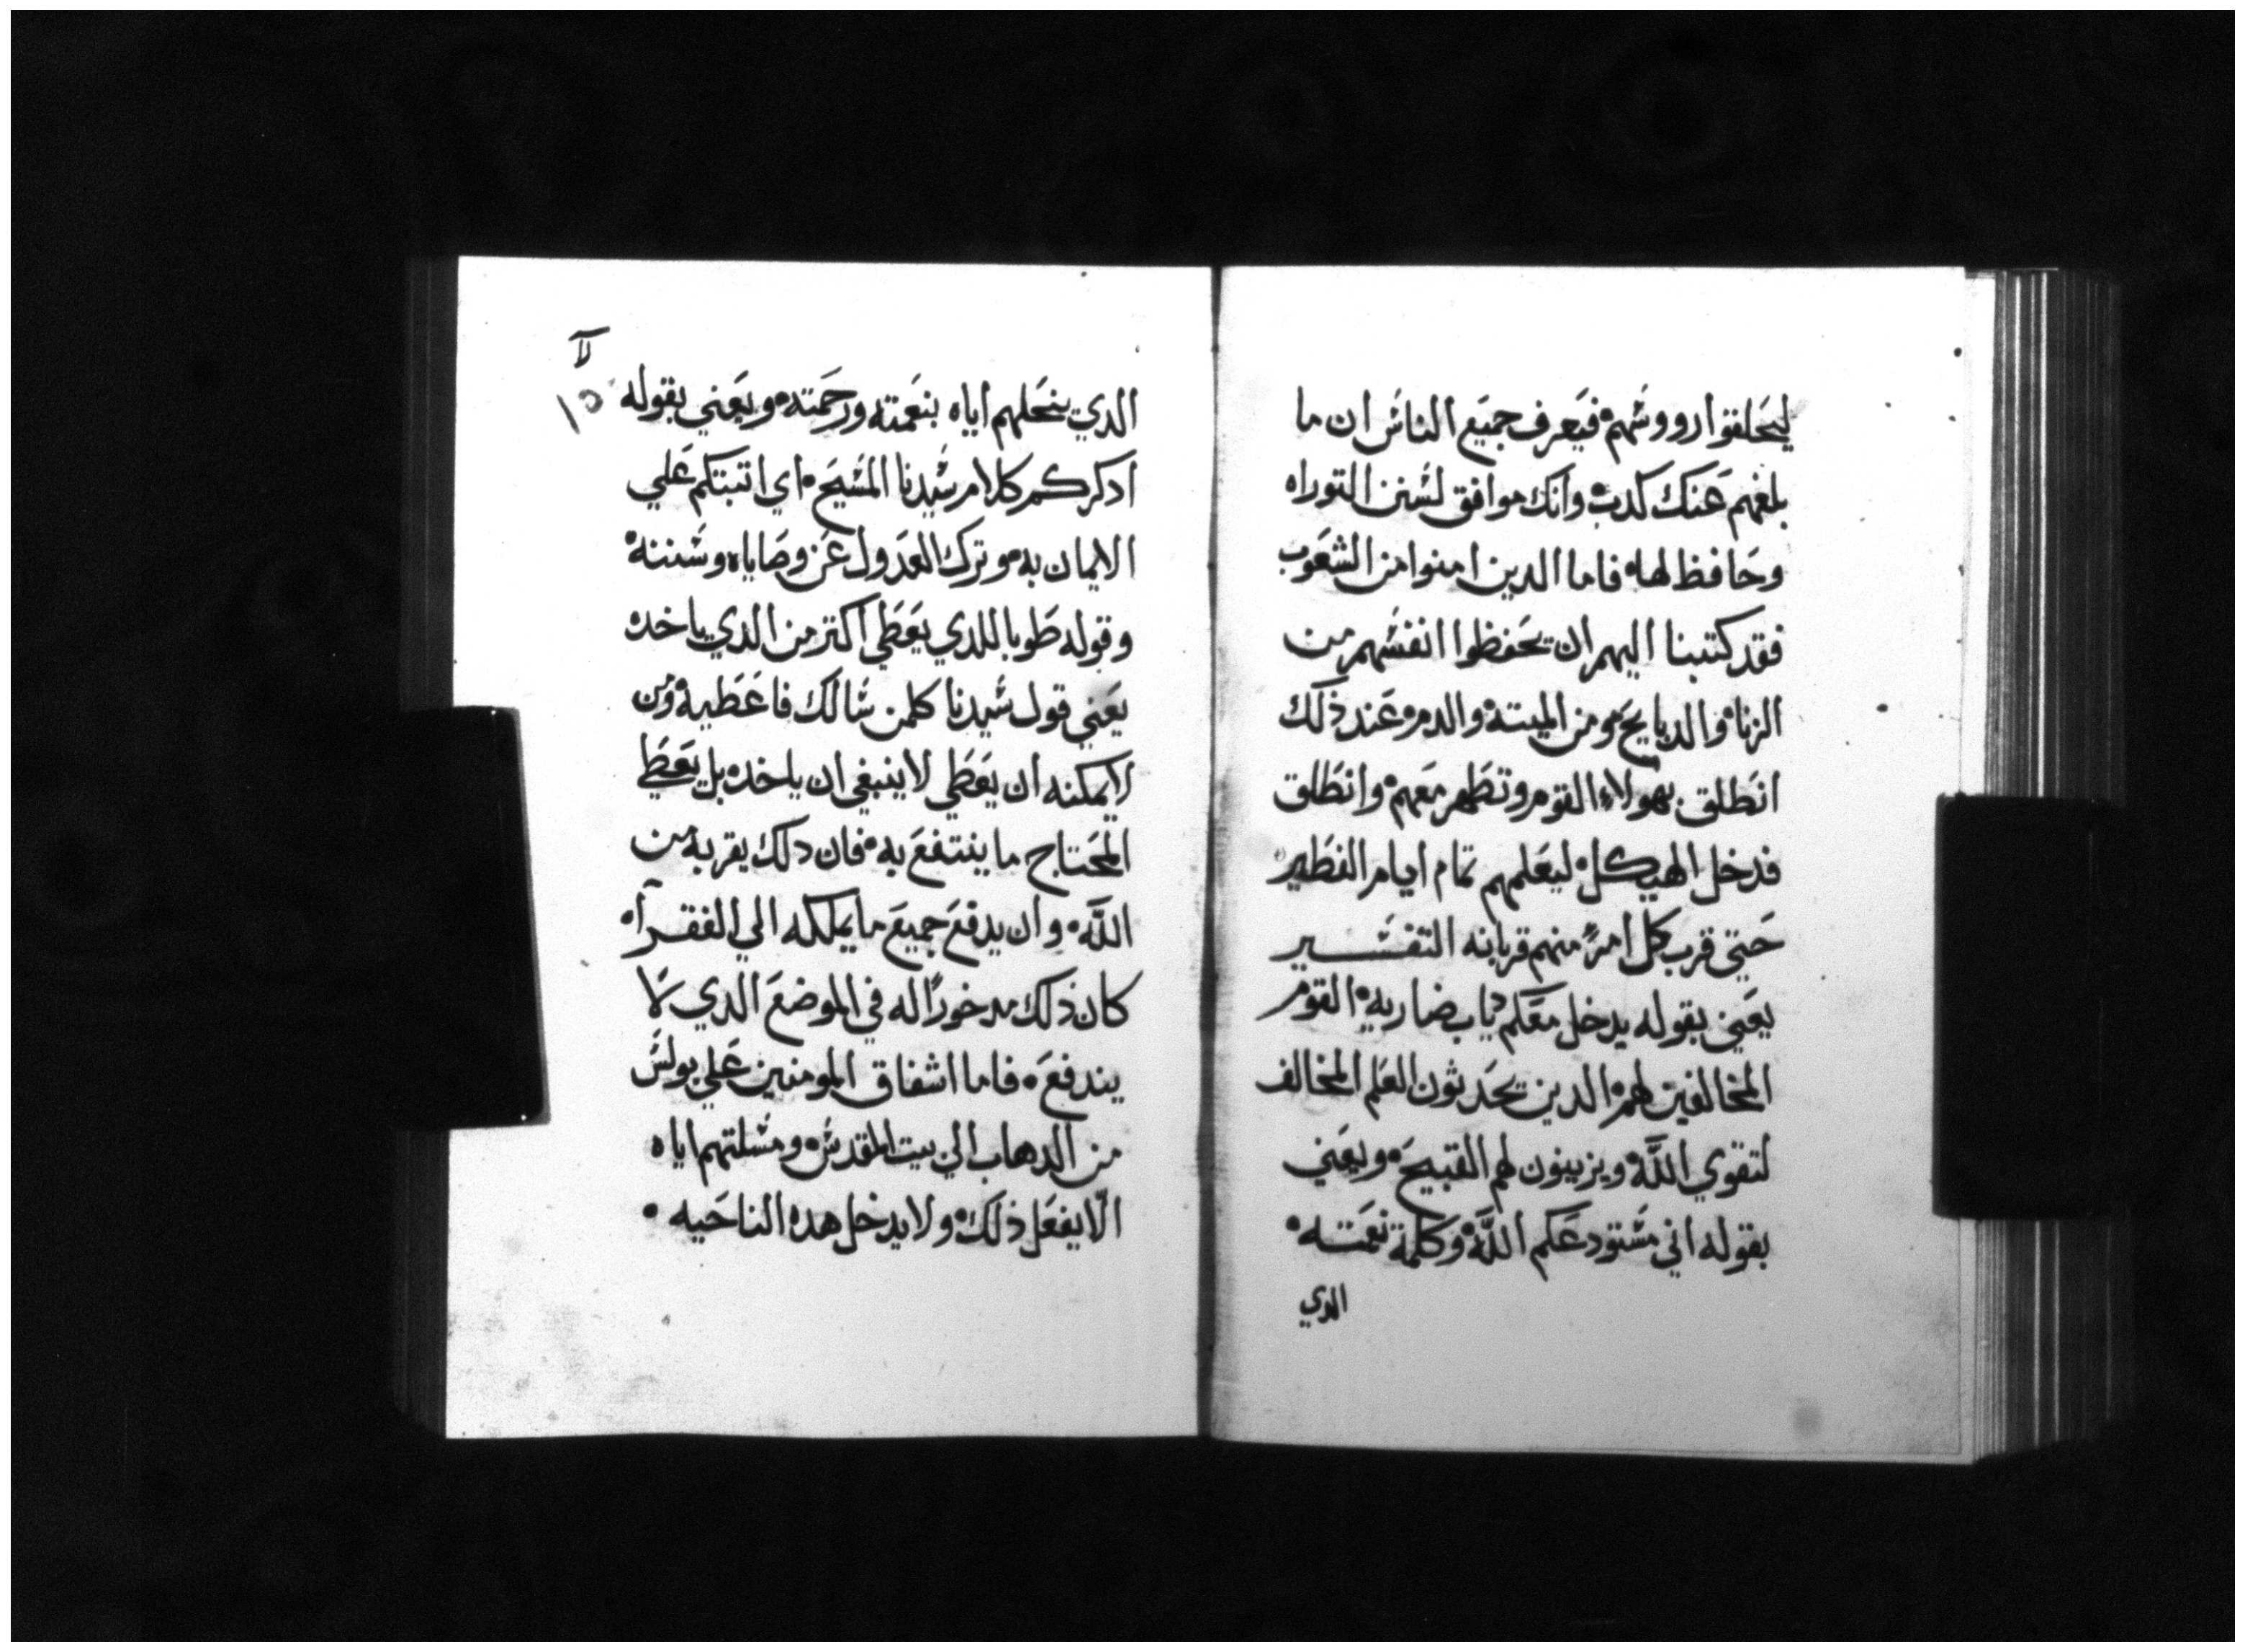 ليحلقوا رووسهم فيعرف جميع الناس ان ما
بلغهم عنك كدب وانك موافق لسنن التوراه
وحافظ لها فاما الدين امنوا من الشعوب
فقد كتبنا اليهم ان يحفظوا انفسهم من
الزنا والدبايح ومن الميتة والدم عند ذلك
انطلق بهولاء القوم وتطهر معهم وانطلق
فدخل الهيكل ليعلمهم تمام ايام الفطير
حتي قرب كل امرء منهم قربانه التفسير
يعني بقوله يدخل معكم دياب ضاريه القوم
المخالفين لهم الدين يحدثون العلم المخالف
لتقوي الله ويزينون لهم القبيح ويعني
بقوله اني مستودعكم الله وكلمة نعمته
الدي
لا
الدي ينحلهم اياه بنعمته ورحمته ويعني بقوله
ادكركم كلام سيدنا المسيح اي اتبتكم علي
الايمان به وترك العدول عن وصاياه وسننه
وقوله طوبا للدي يعطي اكتر من الدي ياخد
يعني قول سيدنا كلمن سالك فاعطيه ومن
لايمكنه ان يعطي لا ينبغي ان ياخد بل يعطي
المحتاج ما ينتفع به فان دلك يقربه من
الله وان يدفع جميع ما يملكه الي الفقرآ
كان ذلك مدخورًا له في الموضع الدي لا
يندفع فاما اشفاق المومنين علي بولس
من الدهاب الي بيت المقدس ومسلتهم اياه
الّا يفعل ذلك ولا يدخل هده الناحيه